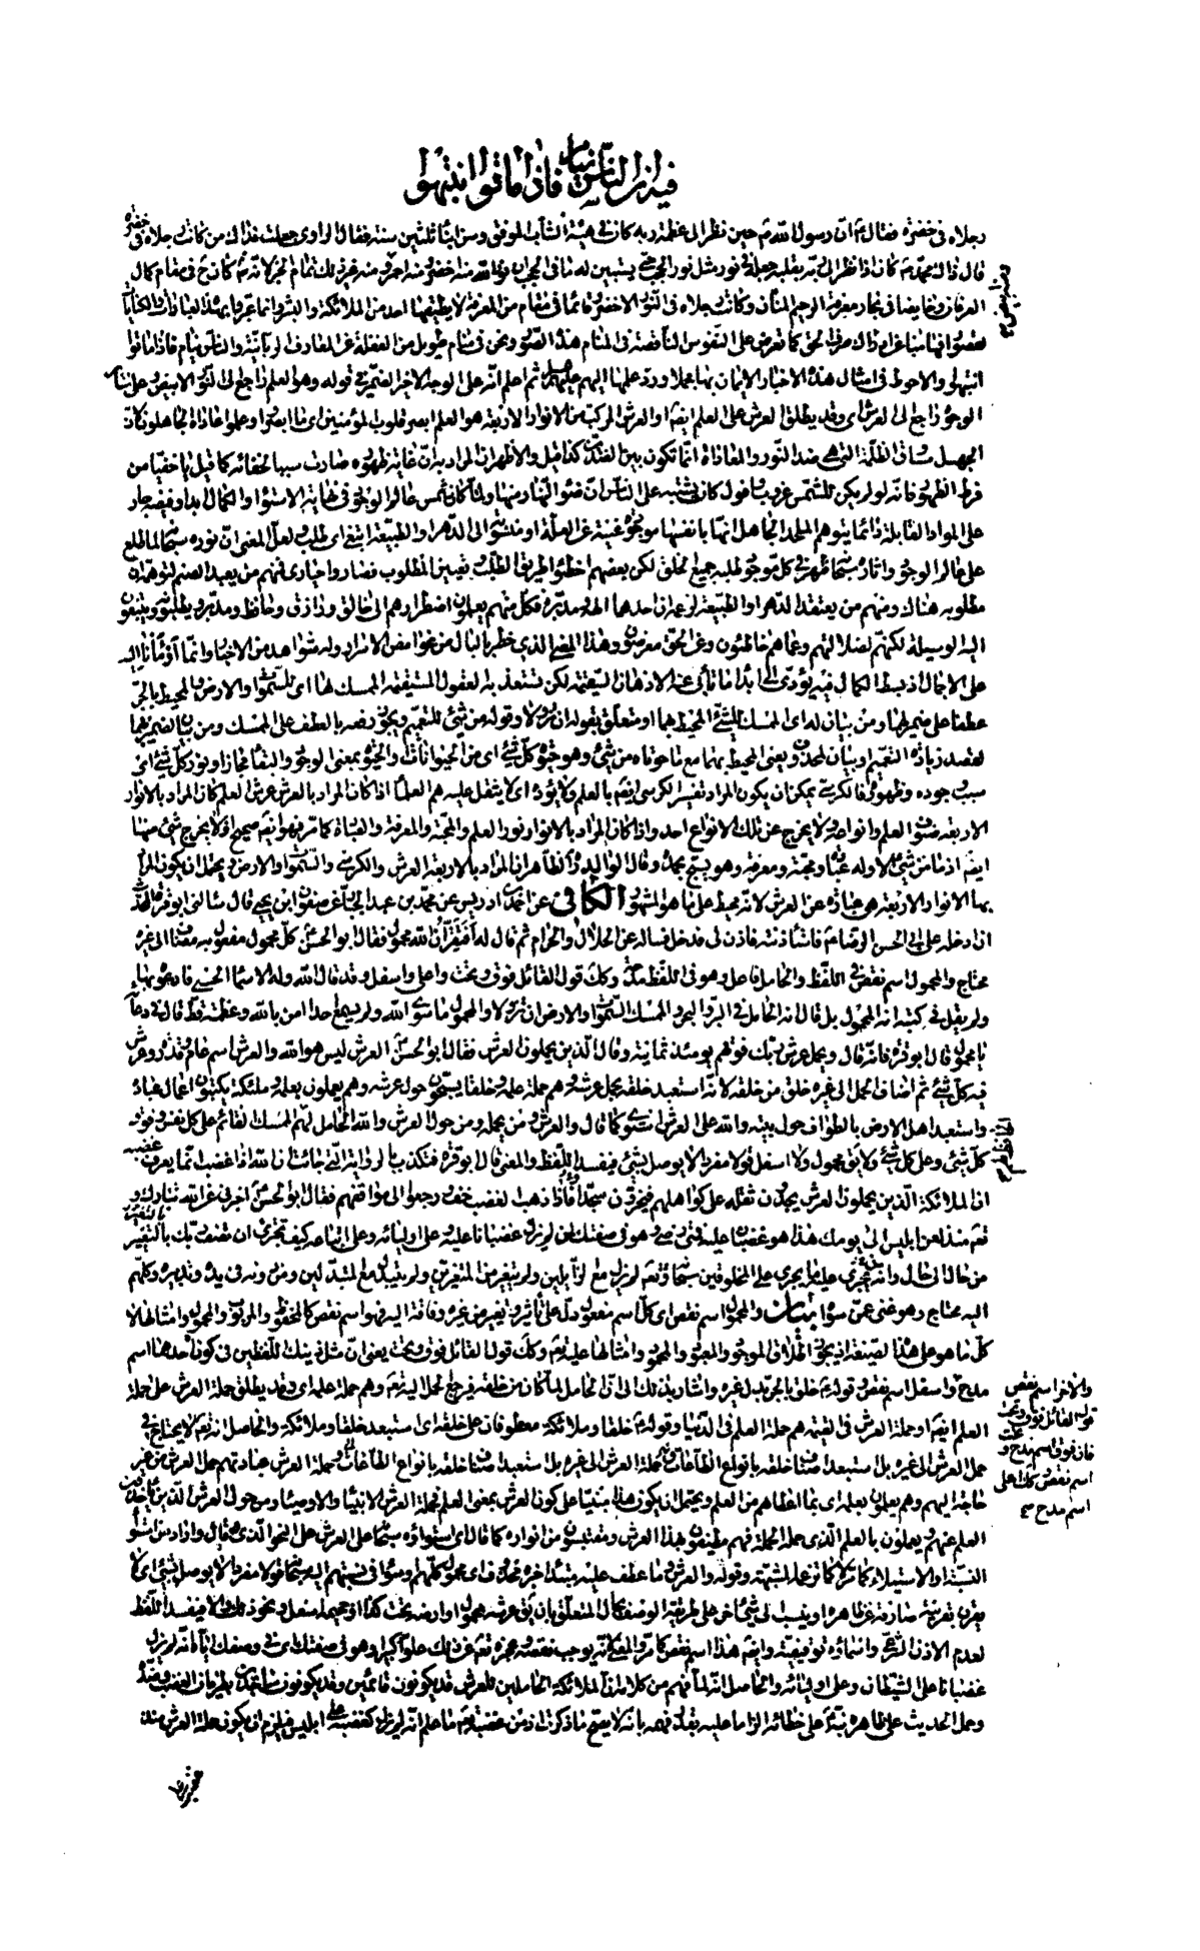 فيه ان الناس نيام فاذا ماتوا انتبهوا
رجلاه في خضرة فقال ع ان رسول الله ص حين نظر الى عظمة ربه كان في هيئة الشاب الموفق وسن ابناء ثلثين سنة فقال الراوي جعلت فداك من كانت رجلاه في خضرة
قال ذاك محمد ص كان اذا نظر الى ربه بقلبه جعله في نور مثل نور الحجب حتى يستبين له ما في الحجب ان نور الله منه اخضر ومنه احمر ومنه غير ذلك
العرفان وخايضا في بحار معرفة الرحيم المنان وكانت رجلاه في النور الاخضر قائما في مقام من المعرفة لا يطيقها احد من الملائكة والبشر وانما عبر بهذه العبارات والكنايات
كما تعرض على النفوس الناقصة في المنام هذه الصور ونحن في منام طويل من الغفلة عن المعارف الربانية والناس نيام فاذا ماتوا
انتبهوا والاحوط في امثال هذه الاخبار الايمان بها مجملا ورد علمها اليهم عليهم السلام ثم اعلم انه على الوجه الاخير الضمير في قوله وهو العلم راجع الى النور الابيض
الوجوه راجع الى العرش اي وقد يطلق العرش على العلم ايضا او العرش المركب من الانوار الاربعة هو العلم ابصر قلوب المؤمنين اي ما ابصروا وعلموا عاداه الجاهلون كان
الجهل مساوق الظلمة التي هي ضد النور والمعاداة انما تكون بين الضدين كذا قيل والاظهر ان المراد به ان غاية ظهوره صارت سببا لخفائه كما قيل يا خفيا من
فرط الظهور فانه لو لم يكن للشمس غروب وافول كان يشتبه على الناس ان ضوء النهار منها ولما كان شمس عالم الوجود في نهاية الاستواء والكمال ابدا وفيضه جار
على المواد القابلة دائما يتوهم الملحد الجاهل انها بانفسها موجودة غنية عن العلة او منسوبة الى الدهر او الطبيعة ابتغى اي طلب ولعل المعنى ان نوره سبحانه لما طلع
على عالم الوجود واثاره سبحانه ظهر في كل موجود طلبه جميع الخلق لكن بعضهم اخطئوا طريق الطلب وتعيين المطلوب فصاروا حيارى فمنهم من يعبد الصنم لتوهمه ان
مطلوبه هناك ومنهم من يعتقد الدهر او الطبيعة لزعمه ان احدهما الهه ومدبره فكل منهم يعلمون اضطرارهم الى خالق ورازق وحافظ ومدبر ويطلبونه ويبتغون
اليه الوسيلة لكنهم لضلالتهم وعماهم خاطئون وعن الحق معرضون وهذا المعنى الذي خطر بالبال من غوامض الاسرار وله شواهد من الاخبار وانما اومأنا اليه
على الاجمال اذ بسط الكلام فيه يؤدي الى ابداء ما تأبى عنه الاذهان السقيمة لكن تستعذبه العقول المستقيمة الممسك لهما اي للسموات والارض والمحيط بالجر
عطفا على ضمير لهما ومن بيان له اي الممسك للشيء المحيط بهما او متعلق بقوله ان تزولا وقوله من شيء للتعميم ويجوز رفعه بالعطف على الممسك ومن بيان لضمير بهما
لقصد زيادة التعميم او بيان لمحذوف يعني المحيط بهما مع ما حوتاه من شيء وهو حيوة كل شيء اي من الحيوانات والحيوة بمعنى الوجود والبقاء مجازا ونور كل شيء اي
سبب وجوده وظهوره فالكرسي يمكن ان يكون المراد تفسير الكرسي ايضا بالعلم ولا يؤده اي لا يثقل عليه هم العلماء اذا كان المراد بالعرش عرش العلم كان المراد بالانوار
الاربعة صنوف العلم وانواعه ولا يخرج عن تلك الانواع احد واذا كان المراد بالانوار نور العلم والمحبة والمعرفة والعبادة كما مر فهو ايضا صحيح اذ لا يخرج شيء منها
ايضا اذ ما من شيء الا وله عبادة ومحبة ومعرفة وهو يسبح بحمده وقال الوالد ره الظاهر ان المراد بالاربعة العرش والكرسي والسموات والارض ويحتمل ان يكون المراد
بها الانوار الاربعة هي عبارة عن العرش لانه محيط على ما هو المشهور الكافي عن احمد بن ادريس عن محمد بن عبد الجبار عن صفوان بن يحيى قال سئالني ابو قرة المحدث
ان ادخله على ابي الحسن الرضا ع فاستأذنته فاذن لي فدخل فساله عن الحلال والحرام ثم قال له افتقر ان الله محمول فقال ابو الحسن ع كل محمول مفعول به مضاف الى غيره
محتاج والمحمول اسم نقص في اللفظ والحامل فاعل وهو في اللفظ مدحة وكذلك قول القائل فوق وتحت واعلى واسفل وقد قال الله وله الاسماء الحسنى فادعوه بها
ولم يقل في كتبه انه المحمول بل قال انه الحامل في البر والبحر والممسك السموات والارض ان تزولا والمحمول ما سوى الله ولم يسمع احد امن بالله وعظمته قط قال في دعائه
يا محمول قال ابو قرة فانه قال ويحمل عرش ربك فوقهم يومئذ ثمانية وقال الذين يحملون العرش فقال ابو الحسن ع العرش ليس هو الله والعرش اسم علم وقدرة وعرش
فيه كل شيء ثم اضاف الحمل الى غيره خلق من خلقه لانه استعبد خلقه بحمل عرشه وهم حملة علمه وخلقا يسبحون حول عرشه وهم يعملون بعلمه وملئكة يكتبون اعمال عباده
واستعبد اهل الارض بالطواف حول بيته والله على العرش استوى كما قال والعرش ومن يحمله ومن حول العرش والله الحامل لهم الممسك القائم على كل نفس وفوق
كل شيء وعلى كل شيء ولا يق محمول ولا اسفل قولا مفردا لا يوصل بشيء فيفسد اللفظ والمعنى قال ابو قرة فتكذب بالرواية التي جائت ان الله اذا غضب انما يعرف غضبه
ان الملائكة الذين يحملون العرش يجدون ثقله على كواهلهم فيخرون سجدا فاذا ذهب الغضب خف ورجعوا الى مواقفهم فقال ابو الحسن ع اخبرني عن الله تبارك و
تعم منذ لعن ابليس الى يومك هذا هو غضبان عليه فمتى رضي وهو في صفتك لم يزل غضبانا عليه وعلى اوليائه وعلى اتباعه كيف تجترئ ان تصف ربك بالتغيير
من حال الى حال وانه يجري عليه ما يجري على المخلوقين سبحانه وتعم لم يزل مع الزايلين ولم يتغير مع المتغيرين ولم يتبدل مع المتبدلين ومن دونه في يده وتدبيره وكلهم
اليه محتاج وهو غني عمن سواه بيان والمحمول اسم نقص اي كل اسم مفعول دل على تأثير وتغيير من غيره وفاقة اليه فهو اسم نقص كالمحفوظ والمربوب والمحمول وامثالها لا
كل ما هو على هذا الصيغة اذ يجوز اطلاق الموجود والمعبود والمحمود وامثالها عليه تعم وكذلك قول القائل فوق وتحت يعني ان مثل ذينك اللفظين في كون احدهما اسم
مدح واسفل اسم نقص وقوله ع خلق بالجر بدل غيره واشار بذلك الى ان الحامل لما كان من خلقه فيرجع الحمل اليه تعم وهم حملة علمه اي وقد يطلق حملة العرش على حملة
العلم ايضا او حملة العرش في القيمة هم حملة العلم في الدنيا وقوله ع خلقا وملائكة معطوفان على خلقه اي استعبد خلقا وملائكة والحاصل انه تعم لا يحتاج في
حمل العرش الى غيره بل استعبد اصناف خلقه بانواع الطاعات وحملة العرش عبادتهم حمل العرش من غير
حاجة اليهم وهم يعملون بعلمه اي بما اعطاهم من العلم ويحتمل ان يكون هذا مبنيا على كون العرش بمعنى العلم فحملة العرش الانبياء والاوصياء ومن حول العرش الذين ياخذون
العلم عنهم ويعملون بالعلم الذي حمله الحملة فهم مطيفون بهذا العرش ومقتبسون من انواره كما قال اي استواؤه سبحانه على العرش على النحو الذي قال واراد من استواء
النسبة او الاستيلاء كما مر لا كما تزعمه المشبهة وقوله والعرش وما عطف عليه مبتدأ خبره محذوف اي محمول كلهم او سواء في نسبتهم اليه سبحانه قولا مفردا لا يوصل بشيء اي لا
يقرن بقرينة صارفة عن ظاهره او ينسب الى شيء اخر على طريقة الوصف بحال المتعلق بان يق عرشه محمول او ارضه تحت كذا او جحيمه اسفل ونحو ذلك والا فيفسد اللفظ
لعدم الاذن الشرعي واسماؤه توقيفية وايضا هذا اسم نقص كما مر والمعنى لانه يوجب نقصه وعجزه تعم عن ذلك علوا كبيرا وهو في صفتك اي في وصفك اياه انه لم يزل
غضبانا على الشيطان وعلى اوليائه والحاصل انه لما فهم من كلامه ان الملائكة الحاملين للعرش قد يكونون قائمين وقد يكونون ساجدين بطريان الغضب وضده
وحمل الحديث على ظاهره نبه ع على خطائه الزاما عليه بقدر فهمه بانه لا يصح ما ذكرت اذ من غضبه تعم ما علم انه لم يزل كغضبه على ابليس فيلزم ان يكون حملة العرش منذ
والاخر اسم نقص
قوله القائل فوق وتحت
فان فوق اسم مدح و
اسم نقص وكذلك اعلى
اسم مدح